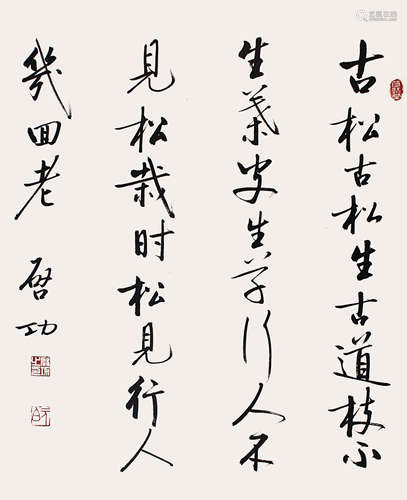 古松古松生古道枝不
生葉皮生草行人不
見松栽時松見行人
幾回老
啓功